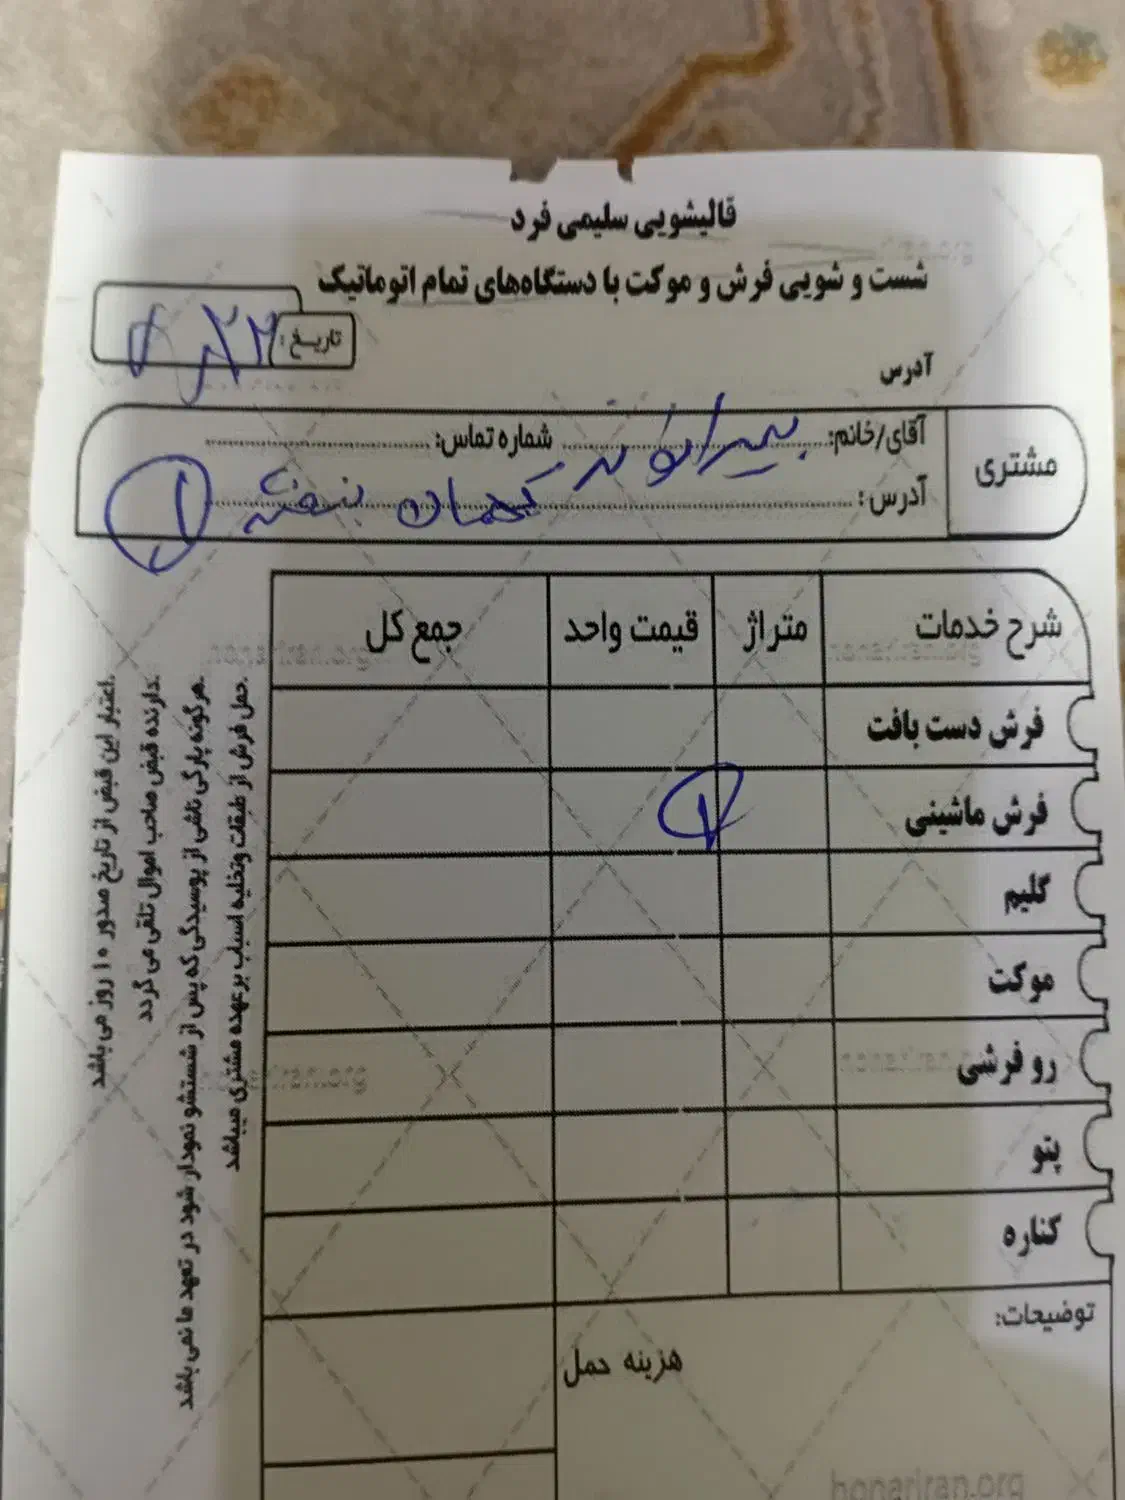 قالیشویی سلیمی فرد
شست و شویی فرش و موکت با دستگاه‌های تمام اتوماتیک
تاریخ:
آدرس
مشتری
آقای/خانم: بیرانوند شماره تماس:
آدرس: کیهان بنفشه ۱
شرح خدمات متراژ قیمت واحد جمع کل
فرش دست بافت
فرش ماشینی
گلیم
موکت
رو فرشی
پتو
کناره
توضیحات:
هزینه حمل
حمل فرش از طبقات وتخلیه اسباب برعهده مشتری میباشد.
هرگونه پارگی ناشی از پوسیدگی که پس از شستشو نمودار شود در تعهد ما نمی باشد.
دارنده قبض صاحب اموال تلقی می گردد.
اعتبار این قبض از تاریخ صدور ۱۰ روز می باشد.
honariran.org